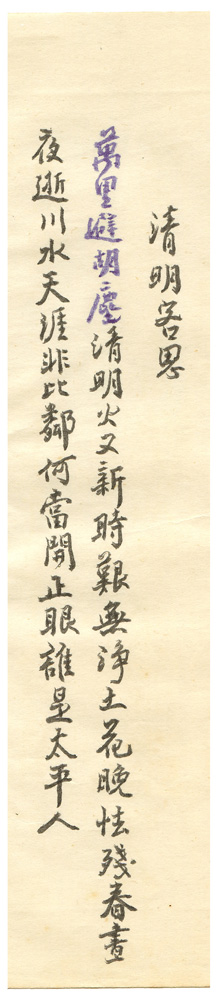 清明客思
萬里避胡塵清明火又新時艱無淨土花晚怯殘春晝
夜逝川水天涯非比鄰何當開正眼誰是太平人